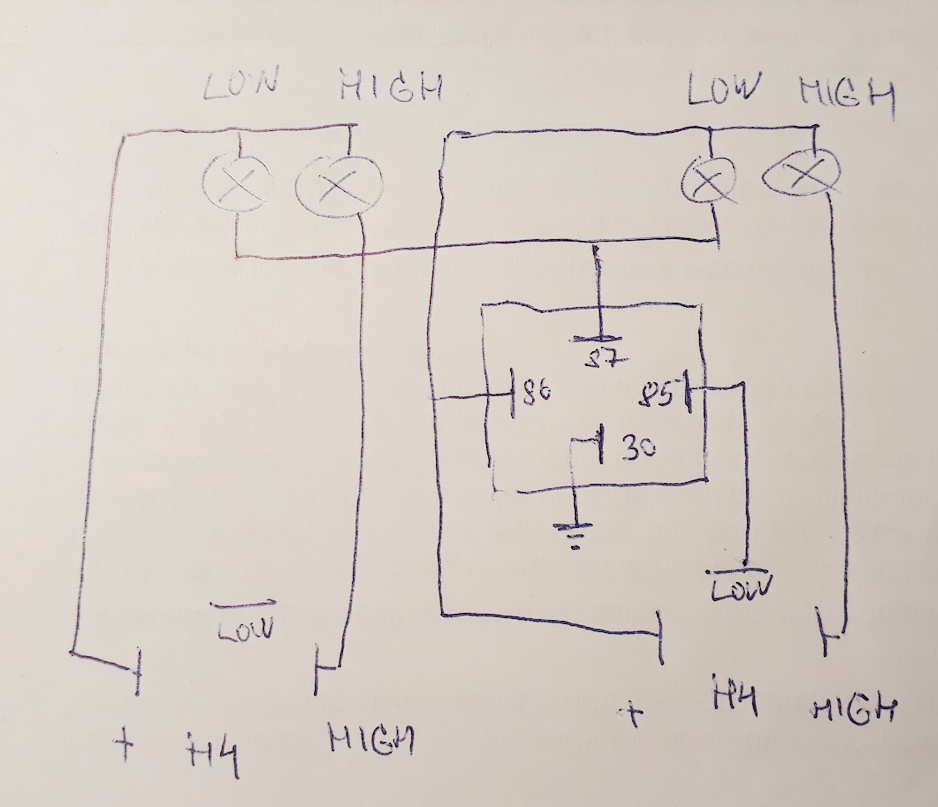 LOW HIGH LOW HIGH
87
86 85
30
LOW
LOW
+ H4 HIGH + H4 HIGH